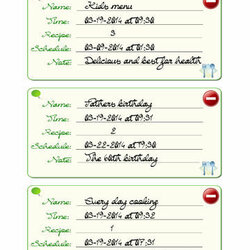 Name: Kids menu
Time: 03-19-2014 at 09:30
Recipe: 3
Schedule: 03-09-2014 at 01:30
Note: Delicious and best for health
Name: Fathers birthday
Time: 03-19-2014 at 09:31
Recipe: 2
Schedule: 03-22-2014 at 19:30
Note: The 60th birthday
Name: Every day cooking
Time: 03-19-2014 at 09:32
Recipe: 1
Schedule: 03-19-2014 at 07:31